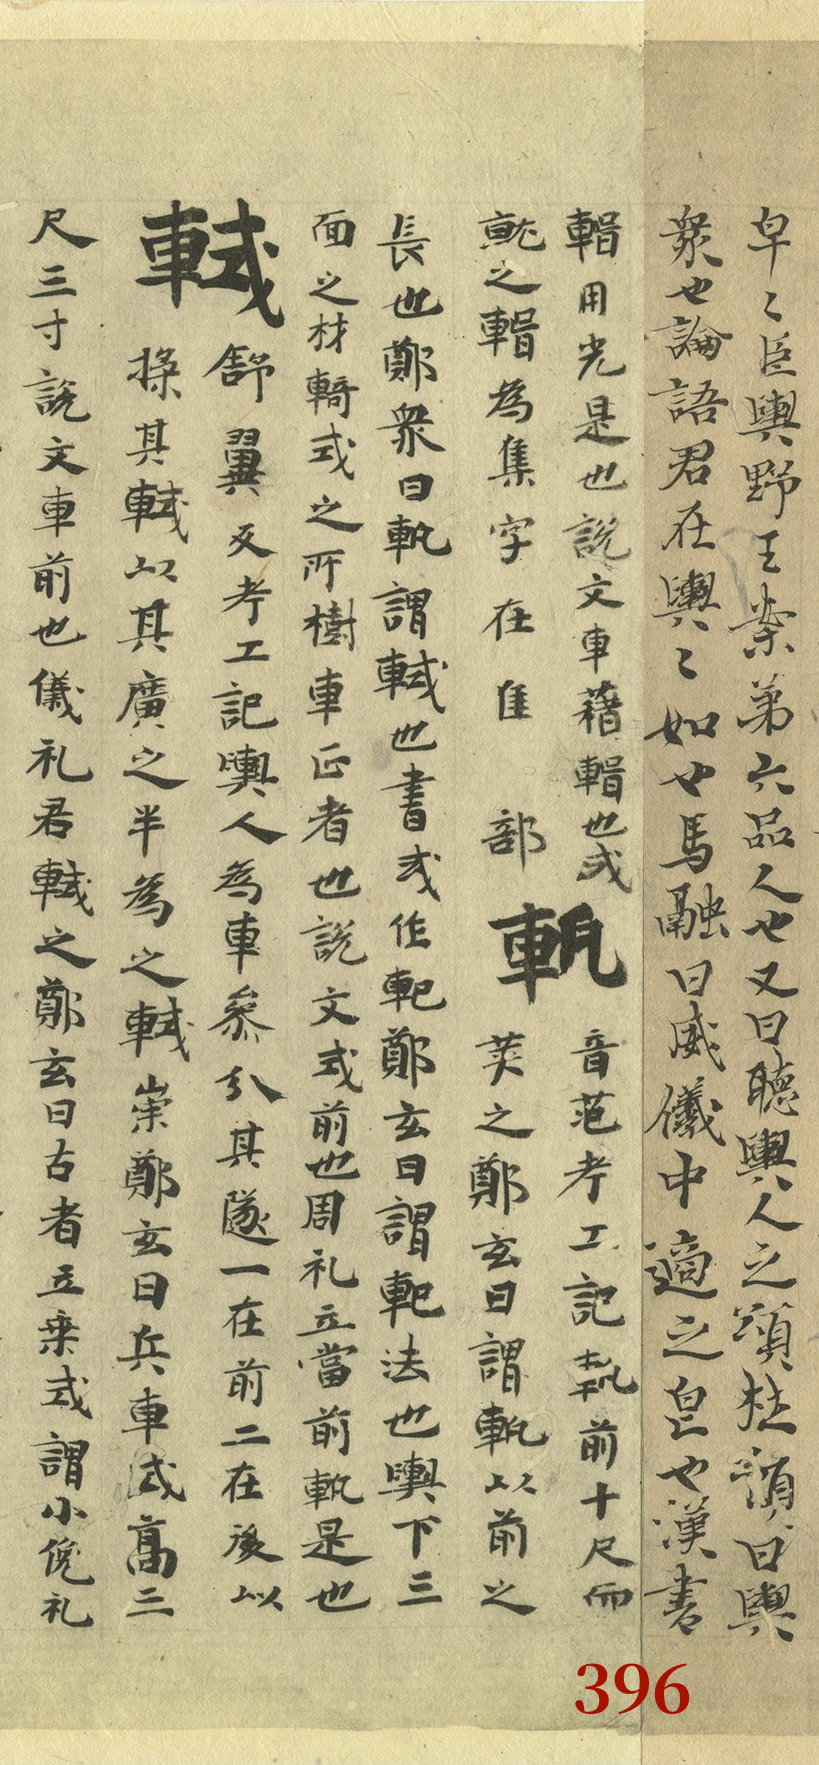 皁〻臣輿野王案第六品人也又曰聽輿人之頌杜預曰輿
衆也論語君在輿〻如也馬融曰威儀中適之皃也漢書
輯用光是也說文車藉輯也或
之輯為集字在隹部
軓
音范考工記軓前十尺而
筞之鄭玄曰謂軓以前之
長也鄭衆曰軓謂軾也書或作𨊠鄭玄曰謂𨊠法也輿下三
面之材輢式之所樹車正者也說文式前也周礼立當前軓是也
軾
舒翼反考工記輿人為車叅分其隧一在前二在後以
揉其軾以其廣之半為之軾崇鄭玄曰兵車式高三
尺三寸說文車前也儀礼君軾之鄭玄曰古者立乗式謂小俛礼
396